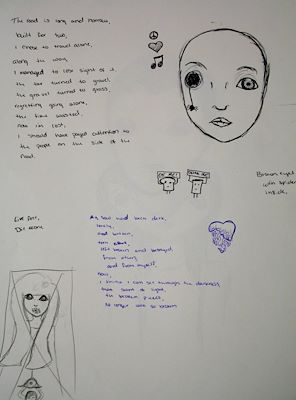 The road is long and narrow,
built for two,
I chose to travel alone,
along the way,
I managed to lose sight of it,
the tar turned to gravel,
the gravel turned to grass,
regretting going alone,
the time wasted,
now im lost,
I should have payed attention to
the people on the side of the
road.
Broken eyes
with spider
inside.
Live fast,
Die alone.
My how had been dark,
lonely,
and broken,
torn
left broken and betrayed,
from others,
and from myself.
now,
I know I can see through the darkness,
that spark of light,
the broken pieces,
no longer are so broken